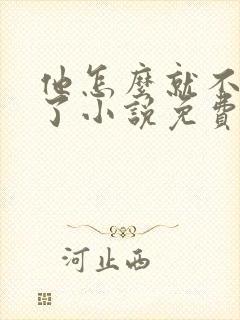 他怎麼就不
了小說免費
河止西